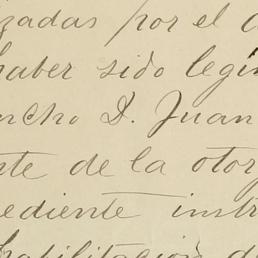 zadas por el
haber sido legí
ncho D. Juan
te de la otor
ediente instr
habilitación de